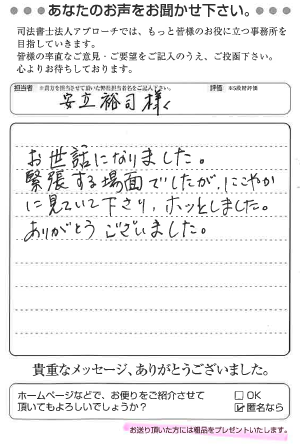 ●●●あなたのお声をお聞かせ下さい。●●●
司法書士法人アプローチでは、もっと皆様のお役に立つ事務所を
目指していきます。
皆様の率直なご意見・ご要望をご記入のうえ、ご投函下さい。
心よりお待ちしております。
担当者 ※貴方を担当させて頂いた弊社担当者名をご記入下さい。 評価 ※5段階評価
安立裕司様へ
お世話になりました。
緊張する場面でしたが、にこやか
に見ていて下さり、ホッとしました。
ありがとうございました。
貴重なメッセージ、ありがとうございました。
ホームページなどで、お便りをご紹介させて □ OK
頂いてもよろしいでしょうか? ☑ 匿名なら
お送り頂いた方には粗品をプレゼントいたします。